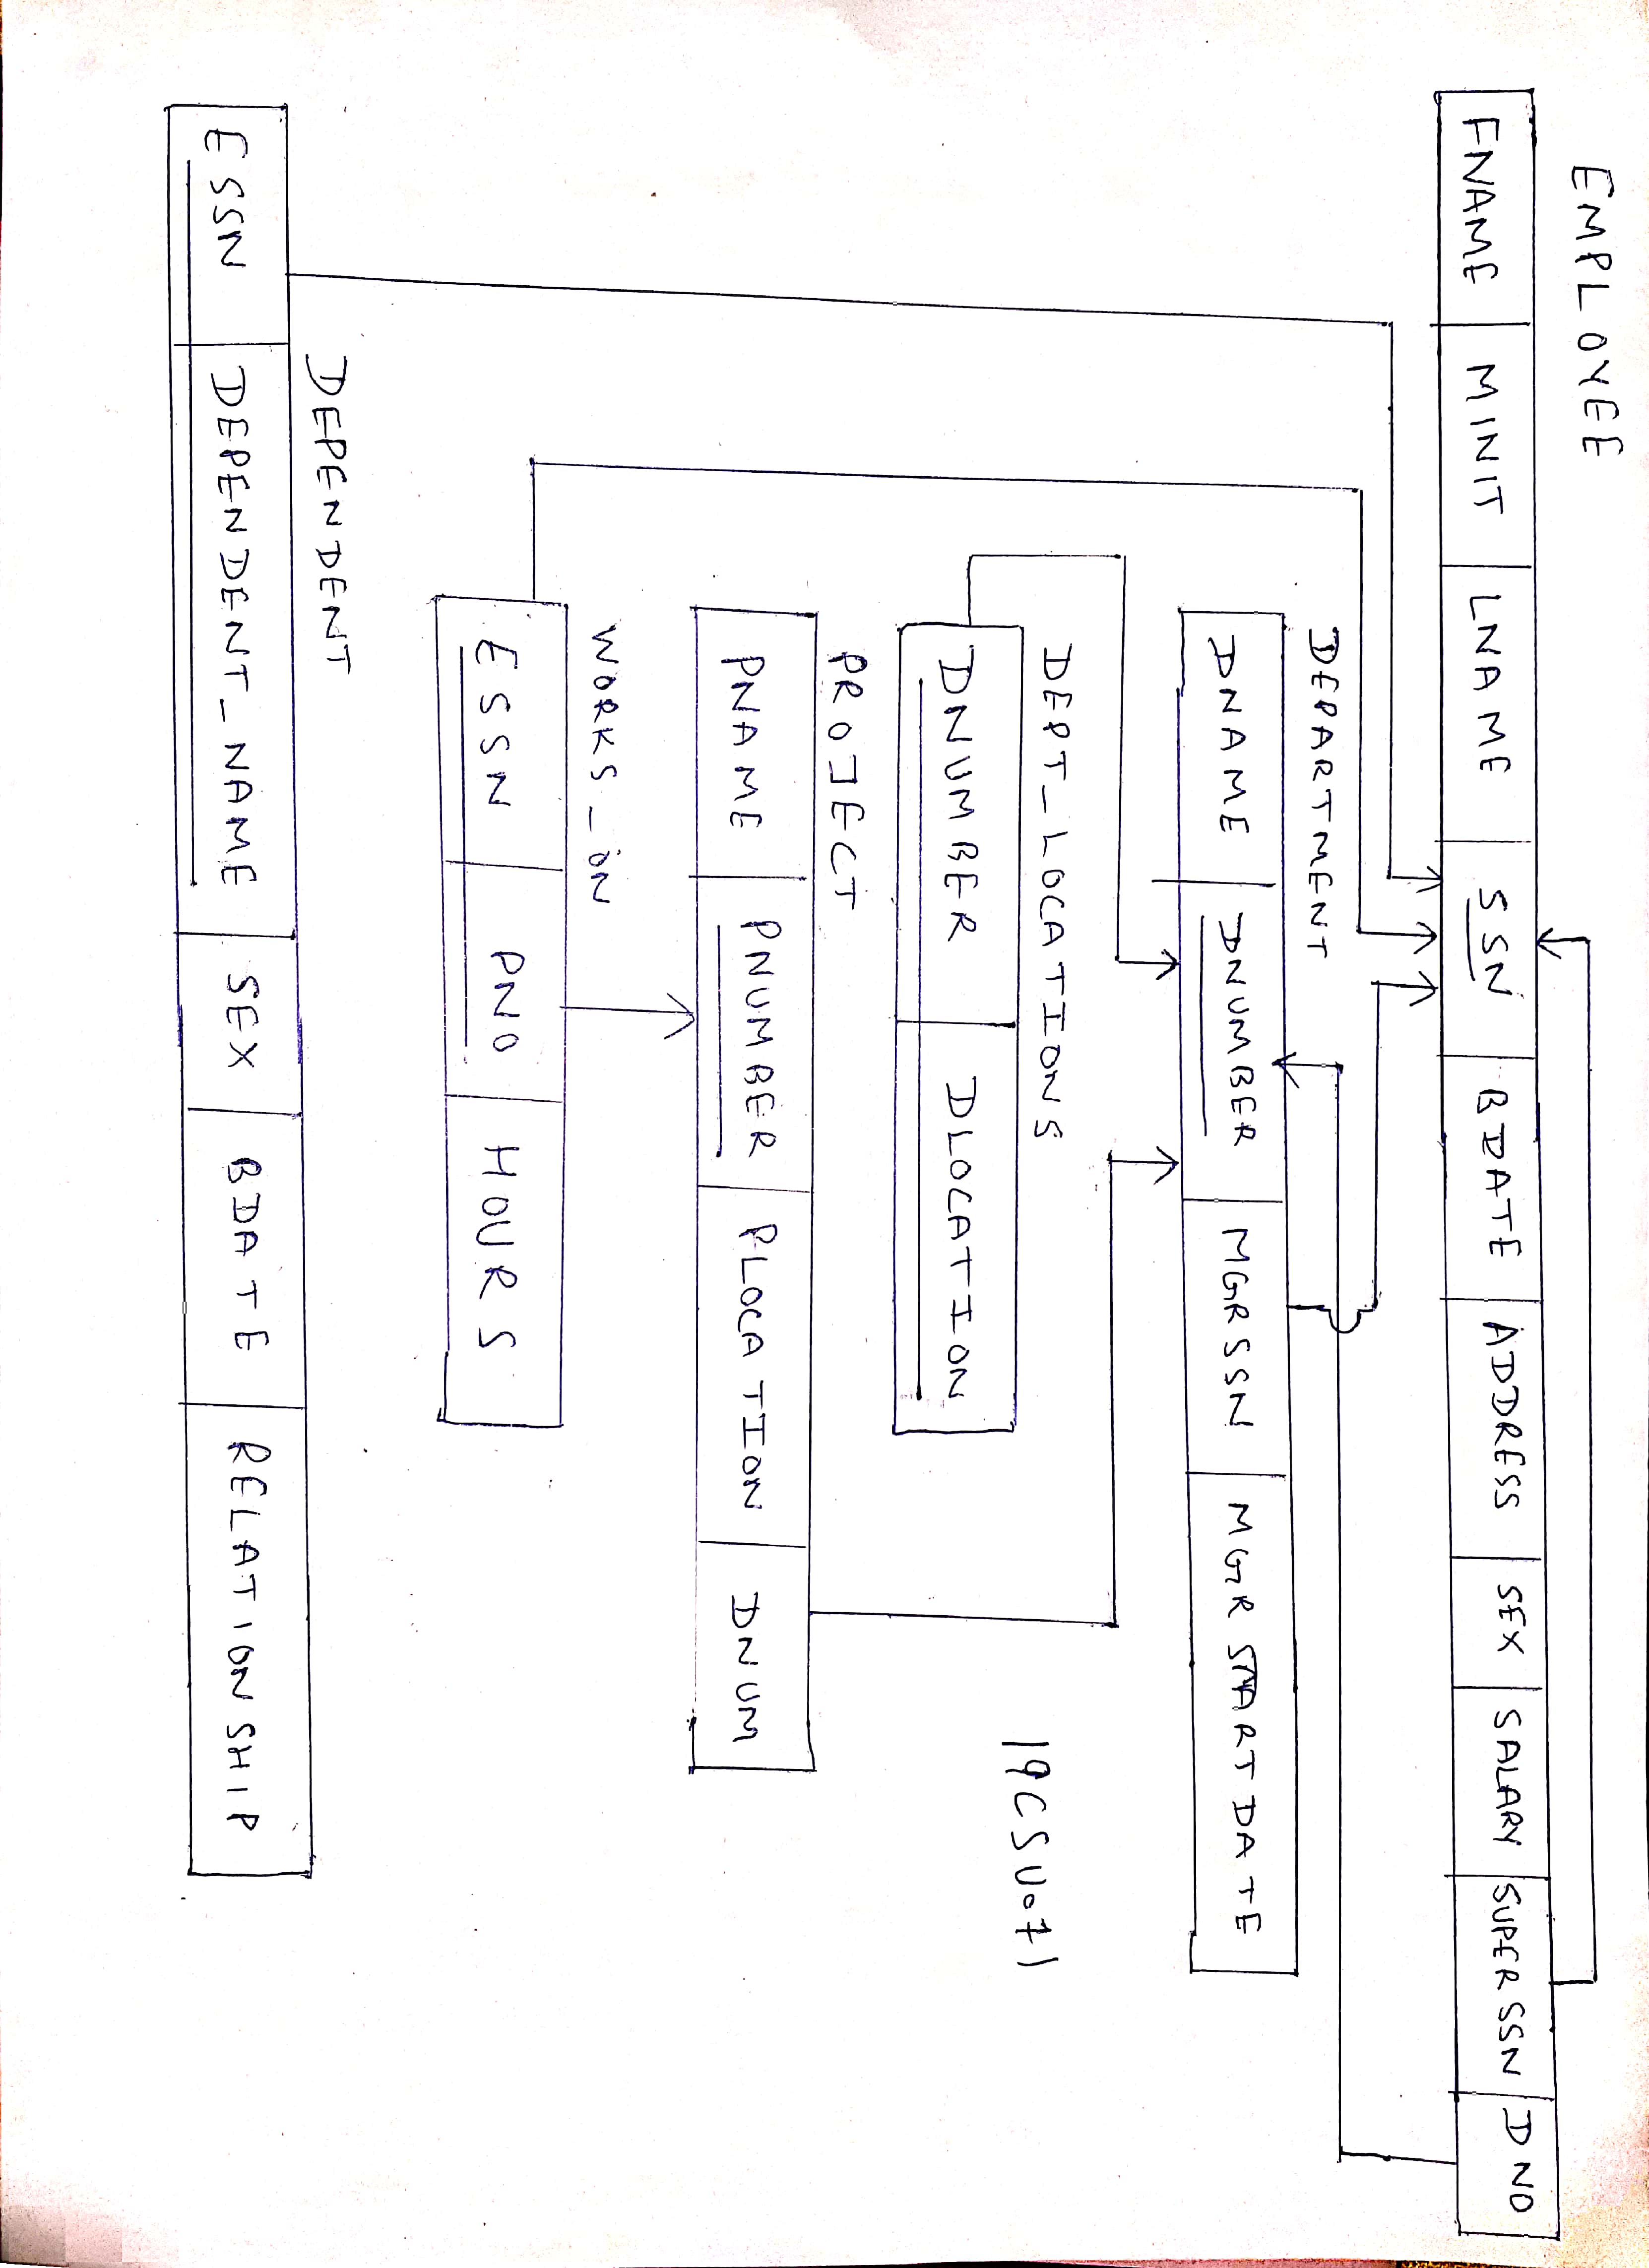 EMPLOYEE
FNAME MINIT LNAME SSN BDATE ADDRESS SEX SALARY SUPERSSN DNO
DEPARTMENT
DNAME DNUMBER MGRSSN MGR START DATE
DEPT_LOCATIONS
DNUMBER DLOCATION
19CSU071
PROJECT
PNAME PNUMBER PLOCATION DNUM
WORKS_ON
ESSN PNO HOURS
DEPENDENT
ESSN DEPENDENT_NAME SEX BDATE RELATIONSHIP